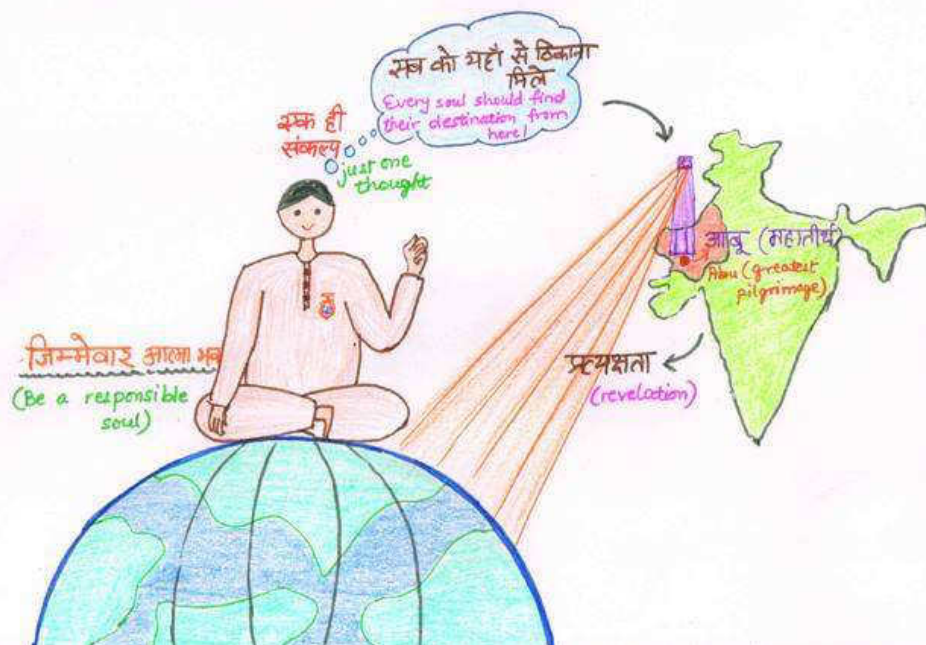 सब को यहाँ से ठिकाना
मिले
Every soul should find
their destination from
here!
एक ही
संकल्प
just one
thought
आबू (महातीर्थ)
Abu (greatest
pilgrimage)
जिम्मेवार आत्मा भव
(Be a responsible
soul)
प्रत्यक्षता
(revelation)